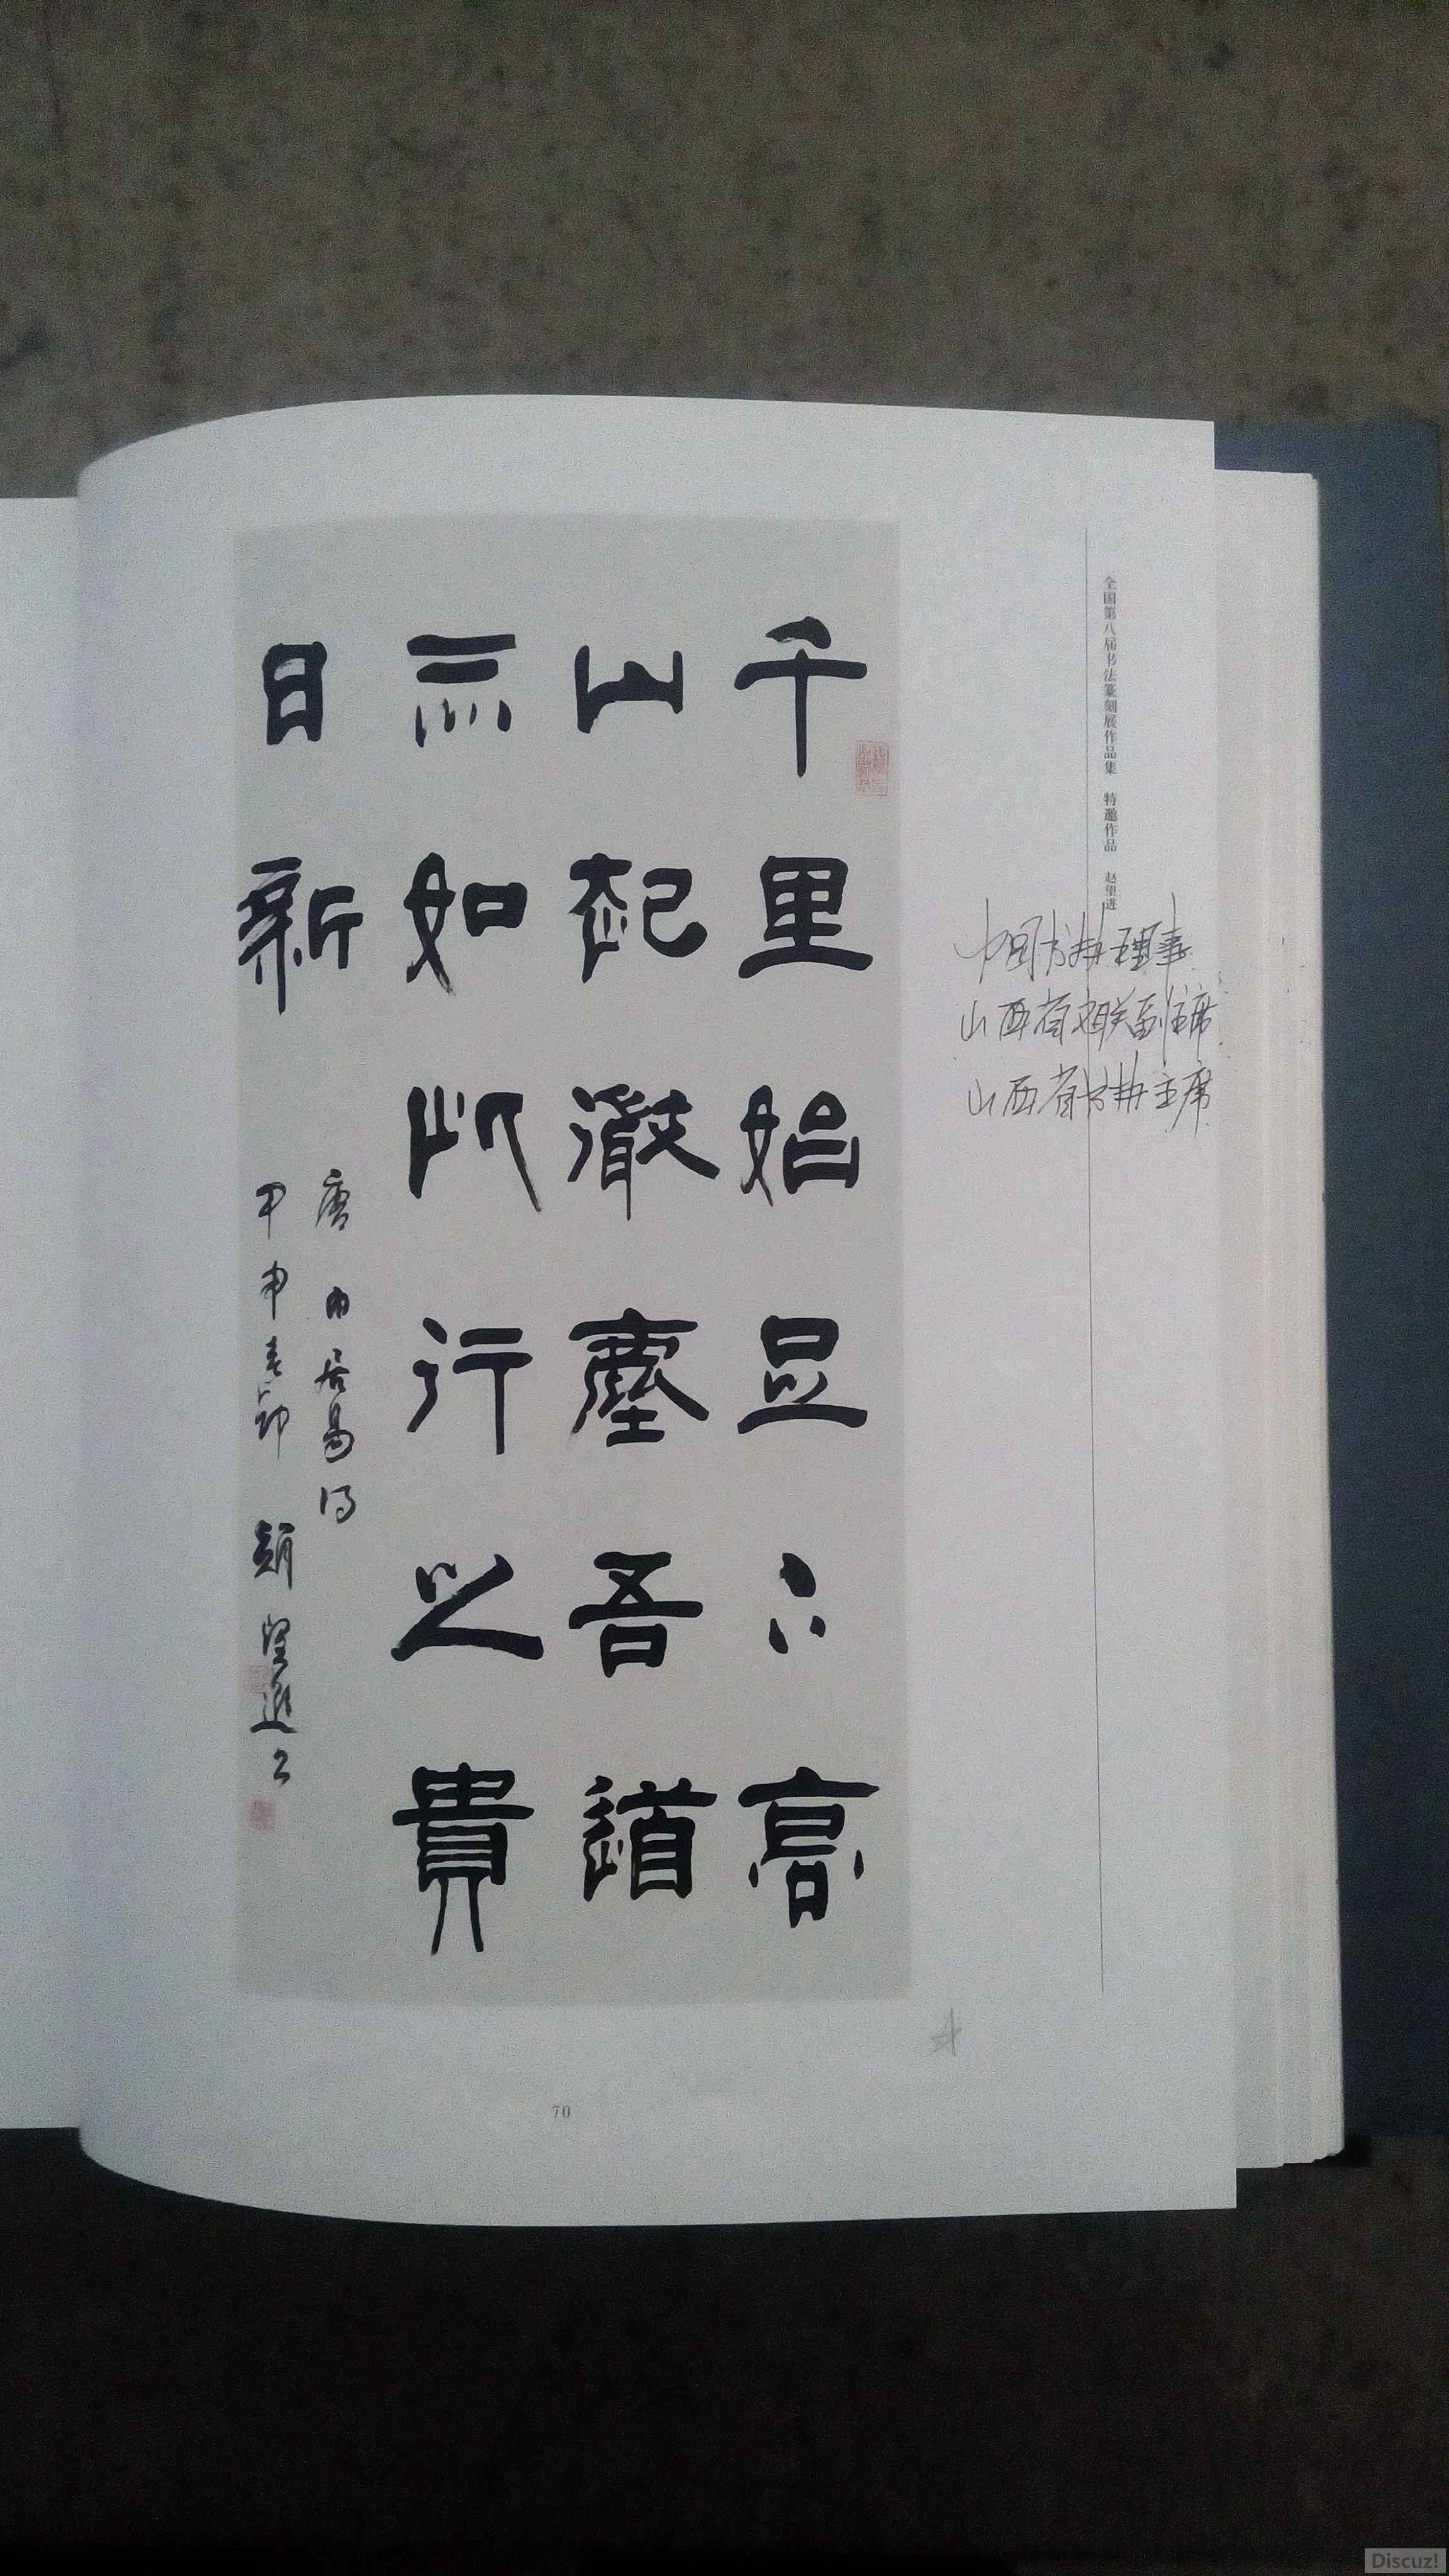 全国第八届书法篆刻展作品集 特邀作品 赵望进
中国书协理事
山西省文联副主席
山西省书协主席
千里始足下高
山起微塵吾道
亦如此行之貴
日新
唐白居易
甲申春節 趙望進书
70
Discuz!